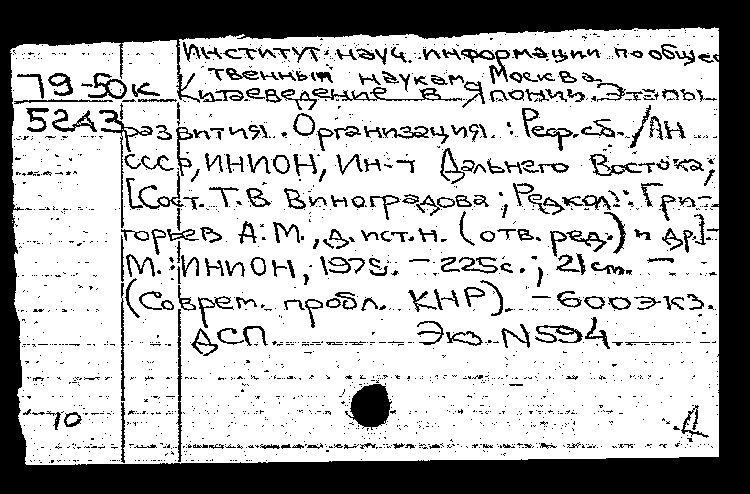 Институт науч. информации по общес
твенным наукам, Москва.
79-50к Китаеведение в Японии. Этапы
52A3 развития. Организация. : Реф. сб. / АН
СССР, ИНИОН, Ин-т Дальнего Востока;
[Сост. Т.В. Виноградова; Редкол.: Гри-
горьев А.М., д.ист.н. (отв. ред.) и др.]-
М.: ИНИОН, 1978. - 225с.; 21 cm. -
(Соврем. пробл. КНР). - 600 экз.
ДСП Экз. N 594.
10